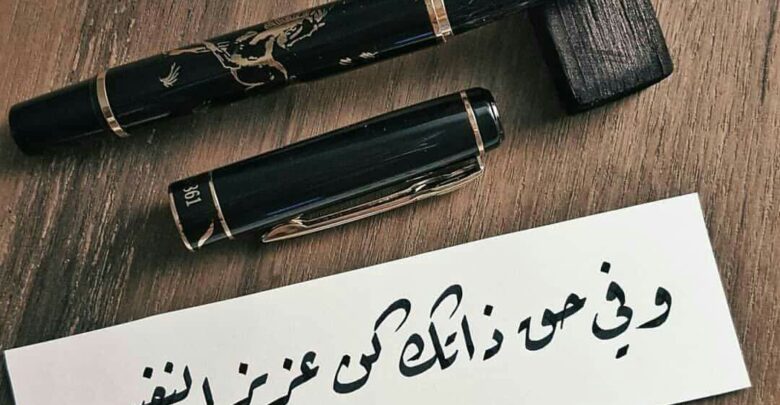 361
وفي حق ذاتك كن عزيز النفس